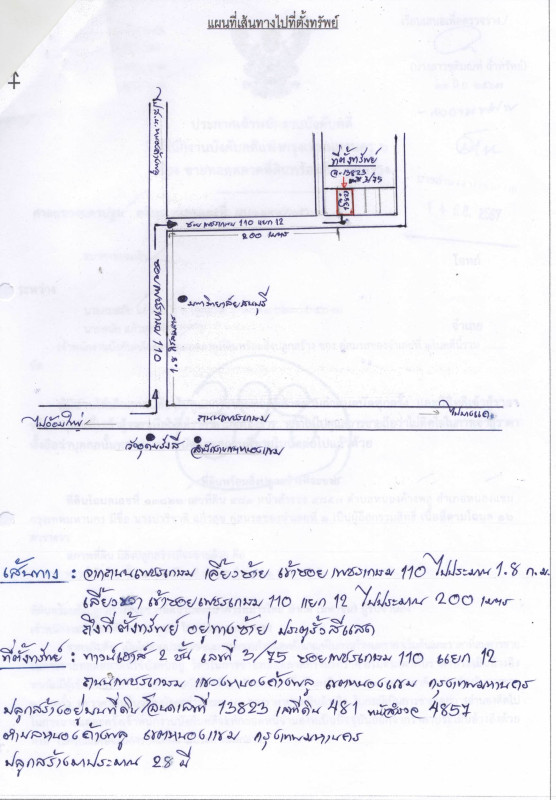 แผนที่เส้นทางไปที่ตั้งทรัพย์
ที่ตั้งทรัพย์
ฉ.13823
เลขที่ 3/75
ซอยเพชรเกษม 110 แยก 12
200 เมตร
ซอยเพชรเกษม 110
1.8 กิโลเมตร
มหาวิทยาลัยธนบุรี
ไปอ้อมใหญ่
ถนนเพชรเกษม
ไปบางแค
วัดอุดมรังสี
สำนักงานเขตหนองแขม
เส้นทาง : จากถนนเพชรเกษม เลี้ยวซ้าย เข้าซอยเพชรเกษม 110 ไปประมาณ 1.8 ก.ม.
เลี้ยวขวา เข้าซอยเพชรเกษม 110 แยก 12 ไปประมาณ 200 เมตร
ถึงที่ตั้งทรัพย์ อยู่ทางซ้าย ประตูรั้วสีแสด
ที่ตั้งทรัพย์ : ทาวน์เฮาส์ 2 ชั้น เลขที่ 3/75 ซอยเพชรเกษม 110 แยก 12
ถนนเพชรเกษม แขวงหนองค้างพลู เขตหนองแขม กรุงเทพมหานคร
ปลูกสร้างอยู่บนที่ดินโฉนดเลขที่ 13823 เลขที่ดิน 481 หน้าสำรวจ 4857
ตำบลหนองค้างพลู เขตหนองแขม กรุงเทพมหานคร
ปลูกสร้างมาประมาณ 28 ปี